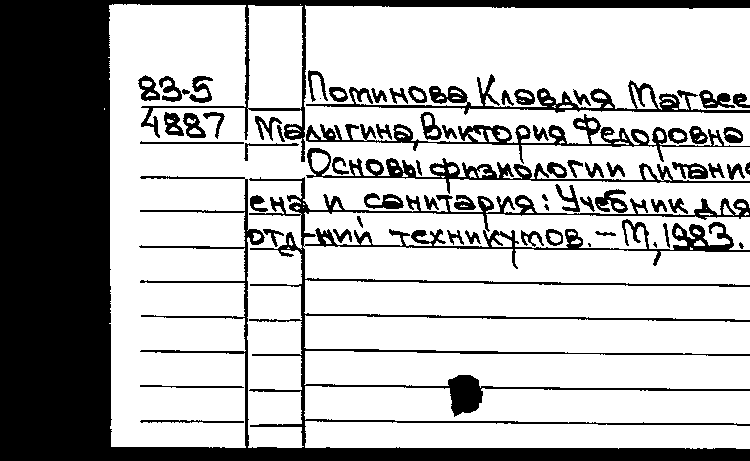 83-5 Поминова, Клавдия Матвее
4887 Малыгина, Виктория Федоровна
Основы физиологии питани
ена и санитария: Учебник для
отд-ний техникумов. – М., 1983.